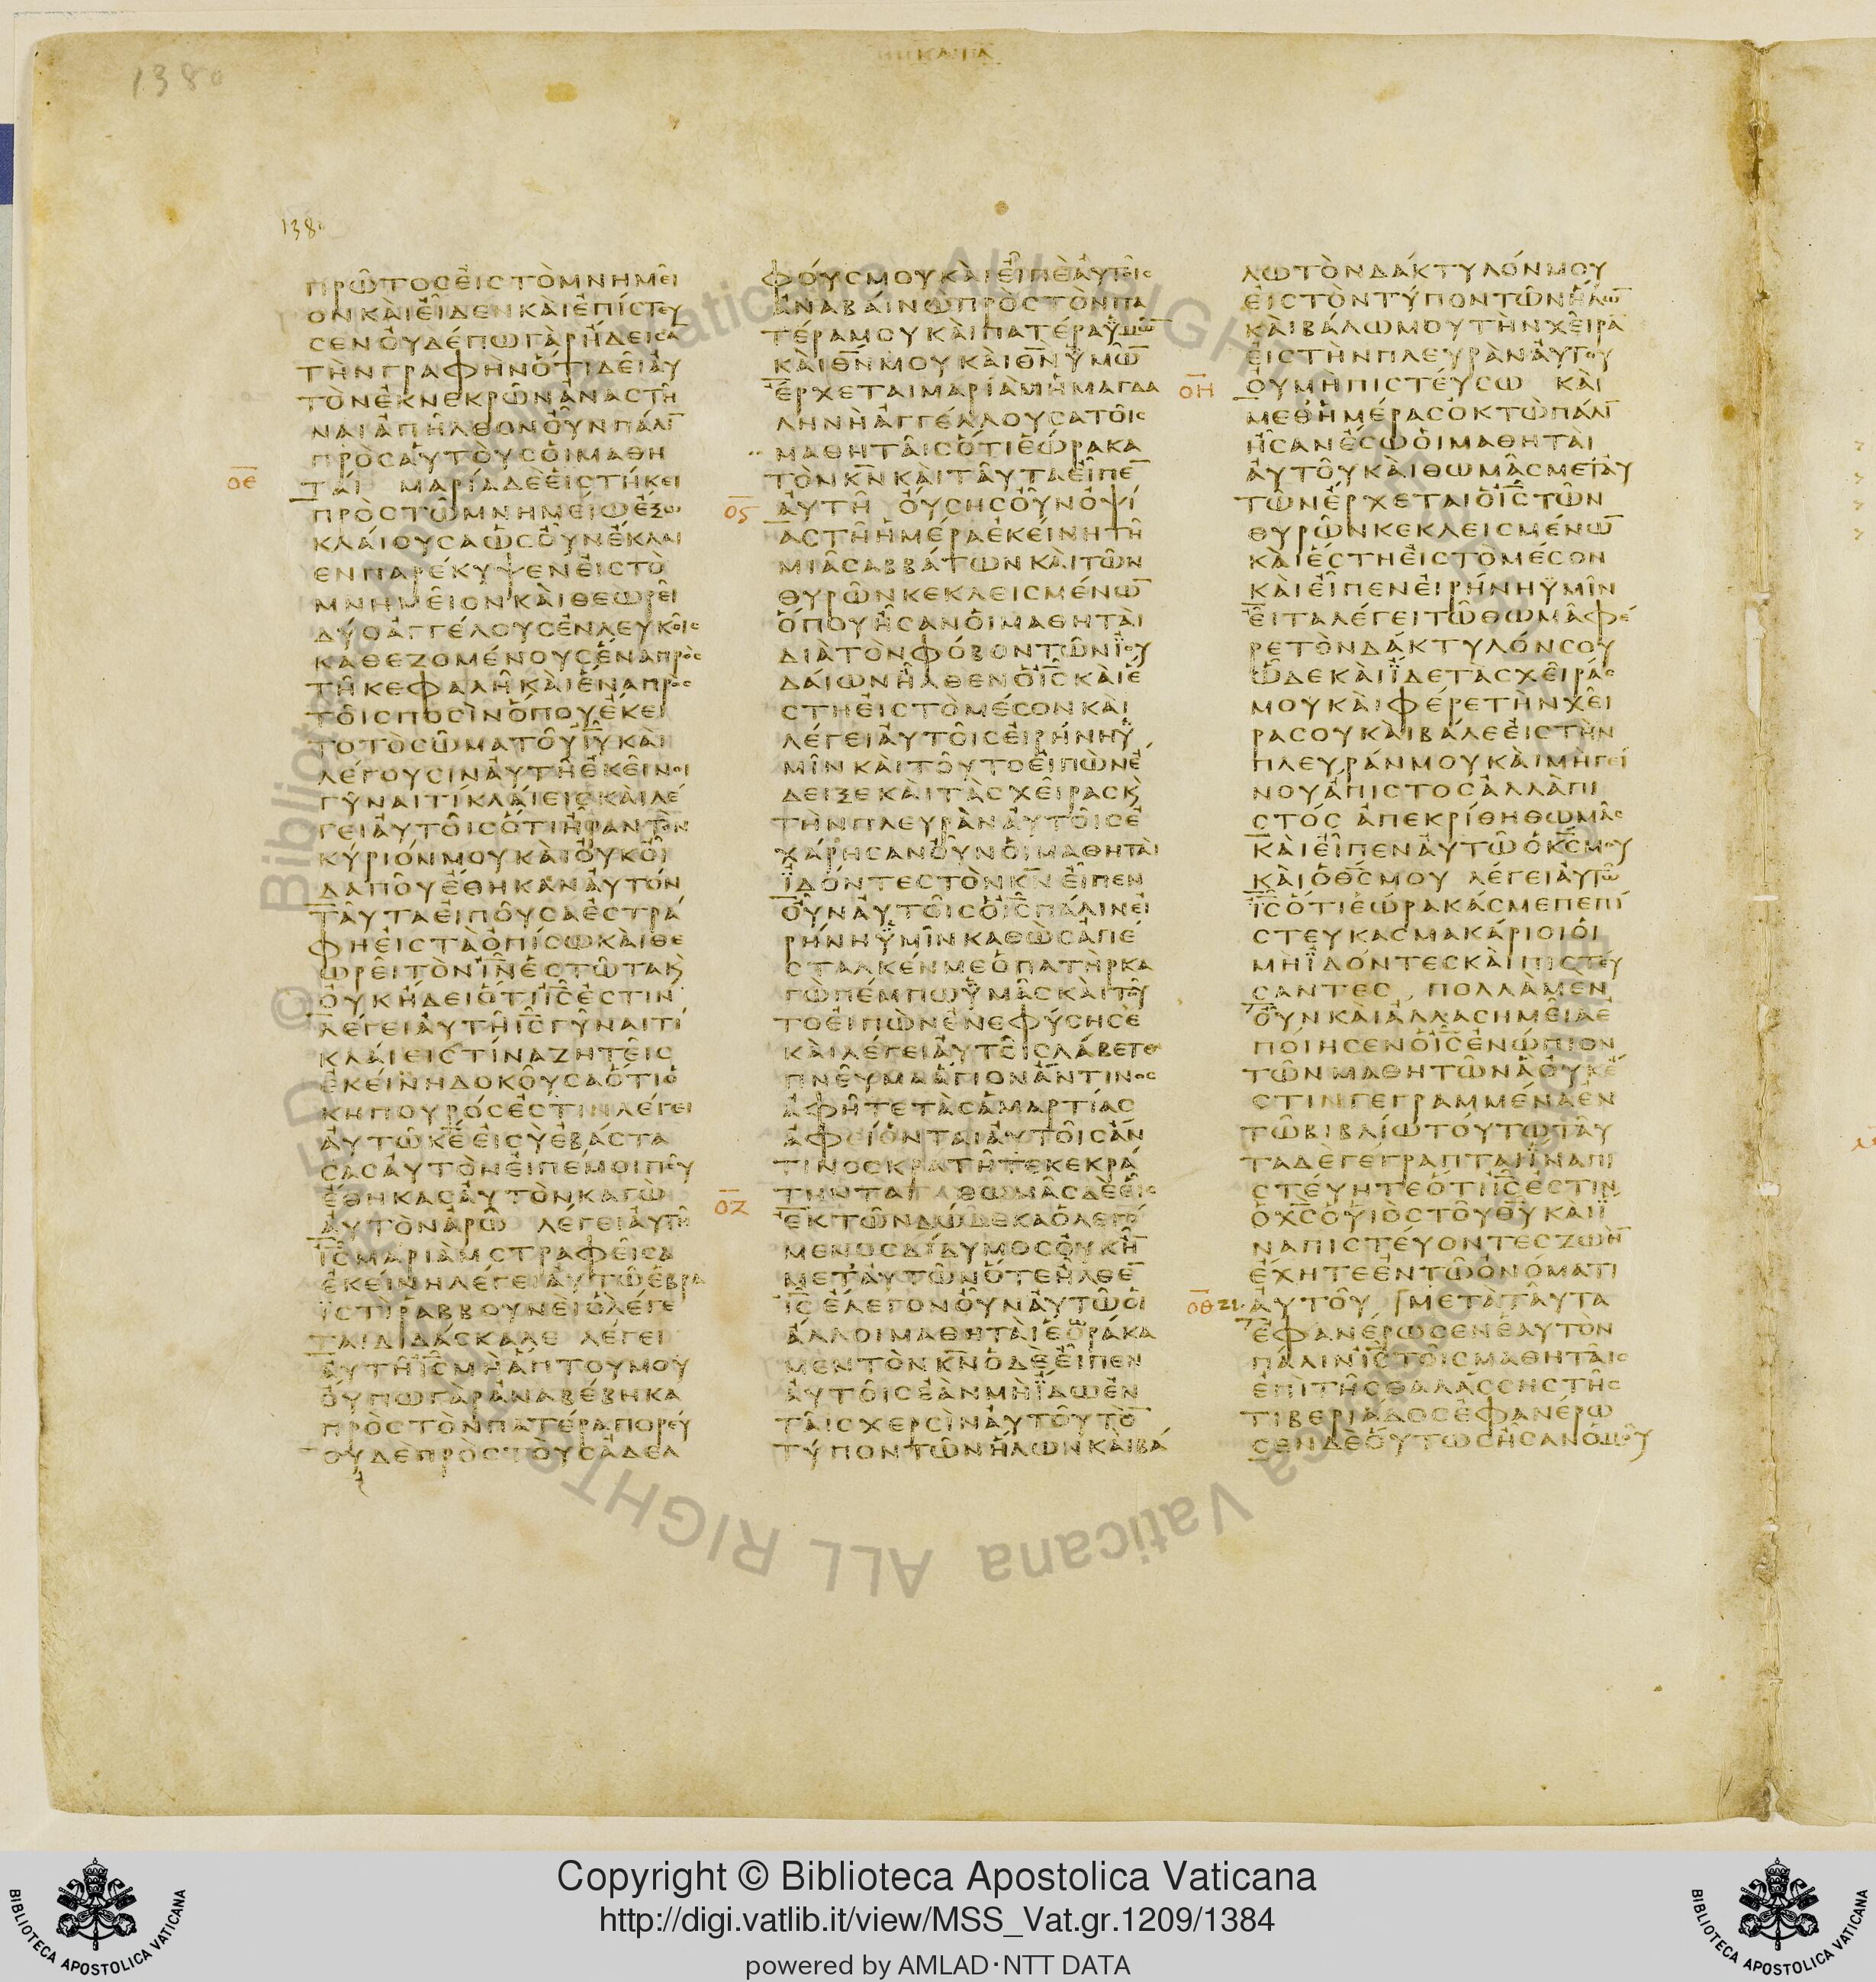 1380
1380
ΠΡΩΤΟCΕΙCΤΟΜΝΗΜΕΙ
ΟΝΚΑΙΕΙΔΕΝΚΑΙΕΠΙCΤΕΥ
CΕΝΟΥΔΕΠΩΓΑΡΗΔΕΙCΑ̅
ΤΗΝΓΡΑΦΗΝΟΤΙΔΕΙΑΥ
ΤΟΝΕΚΝΕΚΡΩΝΑΝΑCΤΗ
ΝΑΙΑΠΗΛΘΟΝΟΥΝΠΑΛΙ̅
ΠΡΟCΑΥΤΟΥCΟΙΜΑΘΗ
Ο̅Ε̅
ΤΑΙ ΜΑΡΙΑΔΕΕΙCΤΗΚΕΙ
ΠΡΟCΤΩΜΝΗΜΕΙΩΕΞΩ
ΚΛΑΙΟΥCΑΩCΟΥΝΕΚΛΑΙ
ΕΝΠΑΡΕΚΥΨΕΝΕΙCΤΟ
ΜΝΗΜΕΙΟΝΚΑΙΘΕΩΡΕΙ
ΔΥΟΑΓΓΕΛΟΥCΕΝΛΕΥΚΟΙC
ΚΑΘΕΖΟΜΕΝΟΥCΕΝΑΠΡΟC
ΤΗΚΕΦΑΛΗΚΑΙΕΝΑΠΡΟC
ΤΟΙCΠΟCΙΝΟΠΟΥΕΚΕΙ
ΤΟΤΟCΩΜΑΤΟΥΙ̅Υ̅ΚΑΙ
ΛΕΓΟΥCΙΝΑΥΤΗΕΚΕΙΝΟΙ
ΓΥΝΑΙΤΙΚΛΑΙΕΙCΚΑΙΛΕ
ΓΕΙΑΥΤΟΙCΟΤΙΗΡΑΝΤΟΝ
ΚΥΡΙΟΝΜΟΥΚΑΙΟΥΚΟΙ
ΔΑΠΟΥΕΘΗΚΑΝΑΥΤΟΝ
ΤΑΥΤΑΕΙΠΟΥCΑΕCΤΡΑ
ΦΗΕΙCΤΑΟΠΙCΩΚΑΙΘΕ
ΩΡΕΙΤΟΝΙ̅Ν̅ΕCΤΩΤΑΚ̀
ΟΥΚΗΔΕΙΟΤΙΙ̅C̅ΕCΤΙΝ
ΛΕΓΕΙΑΥΤΗΙ̅C̅ΓΥΝΑΙΤΙ
ΚΛΑΙΕΙCΤΙΝΑΖΗΤΕΙC
ΕΚΕΙΝΗΔΟΚΟΥCΑΟΤΙΟ
ΚΗΠΟΥΡΟCΕCΤΙΝΛΕΓΕΙ
ΑΥΤΩΚ̅Ε̅ΕΙCΥΕΒΑCΤΑ
CΑCΑΥΤΟΝΕΙΠΕΜΟΙΠΟΥ
ΕΘΗΚΑCΑΥΤΟΝΚΑΓΩ
ΑΥΤΟΝΑΡΩ ΛΕΓΕΙΑΥΤΗ
Ι̅C̅ΜΑΡΙΑΜCΤΡΑΦΕΙCΑ
ΕΚΕΙΝΗΛΕΓΕΙΑΥΤΩΕΒΡΑ
ΪCΤΙΡΑΒΒΟΥΝΕΙΟΛΕΓΕ
ΤΑΙΔΙΔΑCΚΑΛΕ ΛΕΓΕΙ
ΑΥΤΗΙ̅C̅ΜΗΑΠΤΟΥΜΟΥ
ΟΥΠΩΓΑΡΑΝΑΒΕΒΗΚΑ
ΠΡΟCΤΟΝΠΑΤΕΡΑΠΟΡΕΥ
ΟΥΔΕΠΡΟCΤΟΥCΑΔΕΛ
ΦΟΥCΜΟΥΚΑΙΕΙΠΕΑΥΤΟΙC
ΑΝΑΒΑΙΝΩΠΡΟCΤΟΝΠΑ
ΤΕΡΑΜΟΥΚΑΙΠΑΤΕΡΑΫΜΩ̅
ΚΑΙΘ̅Ν̅ΜΟΥΚΑΙΘ̅Ν̅ΫΜΩ̅
ΕΡΧΕΤΑΙΜΑΡΙΑΜΗΜΑΓΔΑ
ΛΗΝΗΑΓΓΕΛΛΟΥCΑΤΟΙC
ΜΑΘΗΤΑΙCΟΤΙΕΩΡΑΚΑ
ΤΟΝΚ̅Ν̅ΚΑΙΤΑΥΤΑΕΙΠΕ̅
Ο̅Ϛ̅
ΑΥΤΗ ΟΥCΗCΟΥΝΟΨΙ
ΑCΤΗΗΜΕΡΑΕΚΕΙΝΗΤΗ
ΜΙΑCΑΒΒΑΤΩΝΚΑΙΤΩΝ
ΘΥΡΩΝΚΕΚΛΕΙCΜΕΝΩ̅
ΟΠΟΥΗCΑΝΟΙΜΑΘΗΤΑΙ
ΔΙΑΤΟΝΦΟΒΟΝΤΩΝΪΟΥ
ΔΑΙΩΝΗΛΘΕΝΟΙ̅C̅ΚΑΙΕ
CΤΗΕΙCΤΟΜΕCΟΝΚΑΙ
ΛΕΓΕΙΑΥΤΟΙCΕΙΡΗΝΗΫ
ΜΙΝΚΑΙΤΟΥΤΟΕΙΠΩΝΕ
ΔΕΙΞΕΚΑΙΤΑCΧΕΙΡΑCΚ̀
ΤΗΝΠΛΕΥΡΑΝΑΥΤΟΙCΕ
ΧΑΡΗCΑΝΟΥΝΟΙΜΑΘΗΤΑΙ
ΪΔΟΝΤΕCΤΟΝΚ̅Ν̅ΕΙΠΕΝ
ΟΥΝΑΥΤΟΙCΟΙ̅C̅ΠΑΛΙΝΕΙ
ΡΗΝΗΫΜΙΝΚΑΘΩCΑΠΕ
CΤΑΛΚΕΝΜΕΟΠΑΤΗΡΚΑ
ΓΩΠΕΜΠΩΫΜΑCΚΑΙΤΟΥ
ΤΟΕΙΠΩΝΕΝΕΦΥCΗCΕ
ΚΑΙΛΕΓΕΙΑΥΤΟΙCΛΑΒΕΤΕ
ΠΝΕΥΜΑΑΓΙΟΝΑΝΤΙΝΟC
ΑΦΗΤΕΤΑCΑΜΑΡΤΙΑC
ΑΦΕΙΟΝΤΑΙΑΥΤΟΙCΑΝ
ΤΙΝΟCΚΡΑΤΗΤΕΚΕΚΡΑ
Ο̅Ζ̅
ΤΗΝΤΑΙ ΘΩΜΑCΔΕΕΙC
ΕΚΤΩΝΔΩΔΕΚΑΟΛΕΓΟ
ΜΕΝΟCΔΙΔΥΜΟCΟΥΚΗ̅
ΜΕΤΑΥΤΩΝΟΤΕΗΛΘΕ̅
Ι̅C̅ΕΛΕΓΟΝΟΥΝΑΥΤΩΟΙ
ΑΛΛΟΙΜΑΘΗΤΑΙΕΟΡΑΚΑ
ΜΕΝΤΟΝΚ̅Ν̅ΟΔΕΕΙΠΕΝ
ΑΥΤΟΙCΕΑΝΜΗΪΔΩΕΝ
ΤΑΙCΧΕΡCΙΝΑΥΤΟΥΤΟ̅
ΤΥΠΟΝΤΩΝΗΛΩΝΚΑΙΒΑ
ΛΩΤΟΝΔΑΚΤΥΛΟΝΜΟΥ
ΕΙCΤΟΝΤΥΠΟΝΤΩΝΗΛΩ̅
ΚΑΙΒΑΛΩΜΟΥΤΗΝΧΕΙΡΑ
ΕΙCΤΗΝΠΛΕΥΡΑΝΑΥΤΟΥ
Ο̅Η̅
ΟΥΜΗΠΙCΤΕΥCΩ ΚΑΙ
ΜΕΘΗΜΕΡΑCΟΚΤΩΠΑΛΙ̅
ΗCΑΝΕCΩΟΙΜΑΘΗΤΑΙ
ΑΥΤΟΥΚΑΙΘΩΜΑCΜΕΤΑΥ
ΤΩΝΕΡΧΕΤΑΙΟΙ̅C̅ΤΩΝ
ΘΥΡΩΝΚΕΚΛΕΙCΜΕΝΩ̅
ΚΑΙΕCΤΗΕΙCΤΟΜΕCΟΝ
ΚΑΙΕΙΠΕΝΕΙΡΗΝΗΫΜΙΝ
ΕΙΤΑΛΕΓΕΙΤΩΘΩΜΑΦΕ
ΡΕΤΟΝΔΑΚΤΥΛΟΝCΟΥ
ΩΔΕΚΑΙΪΔΕΤΑCΧΕΙΡΑC
ΜΟΥΚΑΙΦΕΡΕΤΗΝΧΕΙ
ΡΑCΟΥΚΑΙΒΑΛΕΕΙCΤΗΝ
ΠΛΕΥΡΑΝΜΟΥΚΑΙΜΗΓΕΙ
ΝΟΥΑΠΙCΤΟCΑΛΛΑΠΙ
CΤΟC ΑΠΕΚΡΙΘΗΘΩΜΑC
ΚΑΙΕΙΠΕΝΑΥΤΩΟΚ̅C̅ΜΟΥ
ΚΑΙΟΘ̅C̅ΜΟΥ ΛΕΓΕΙΑΥΤΩ
Ι̅C̅ΟΤΙΕΩΡΑΚΑCΜΕΠΕΠΙ
CΤΕΥΚΑCΜΑΚΑΡΙΟΙΟΙ
ΜΗΪΔΟΝΤΕCΚΑΙΠΙCΤΕΥ
CΑΝΤΕC ΠΟΛΛΑΜΕΝ
ΟΥΝΚΑΙΑΛΛΑCΗΜΕΙΑΕ
ΠΟΙΗCΕΝΟΙ̅C̅ΕΝΩΠΙΟΝ
ΤΩΝΜΑΘΗΤΩΝΑΟΥΚΕ
CΤΙΝΓΕΓΡΑΜΜΕΝΑΕΝ
ΤΩΒΙΒΛΙΩΤΟΥΤΩΤΑΥ
ΤΑΔΕΓΕΓΡΑΠΤΑΙΪΝΑΠΙ
CΤΕΥΗΤΕΟΤΙΙ̅C̅ΕCΤΙΝ
ΟΧ̅C̅ΟΥΙΟCΤΟΥΘ̅Υ̅ΚΑΙΪ
ΝΑΠΙCΤΕΥΟΝΤΕCΖΩΗ̅
ΕΧΗΤΕΕΝΤΩΟΝΟΜΑΤΙ
Ο̅Θ̅ 21.
ΑΥΤΟΥ ΜΕΤΑΤΑΥΤΑ
ΕΦΑΝΕΡΩCΕΝΕΑΥΤΟΝ
ΠΑΛΙΝΙ̅C̅ΤΟΙCΜΑΘΗΤΑΙC
ΕΠΙΤΗCΘΑΛΑCCΗCΤΗC
ΤΙΒΕΡΙΑΔΟCΕΦΑΝΕΡΩ
CΕΝΔΕΟΥΤΩCΗCΑΝΟΜΟΥ
© Biblioteca Apostolica Vaticana ALL RIGHTS RESERVED
Copyright © Biblioteca Apostolica Vaticana
http://digi.vatlib.it/view/MSS_Vat.gr.1209/1384
powered by AMLAD·NTT DATA
BIBLIOTECA APOSTOLICA VATICANA
BIBLIOTECA APOSTOLICA VATICANA